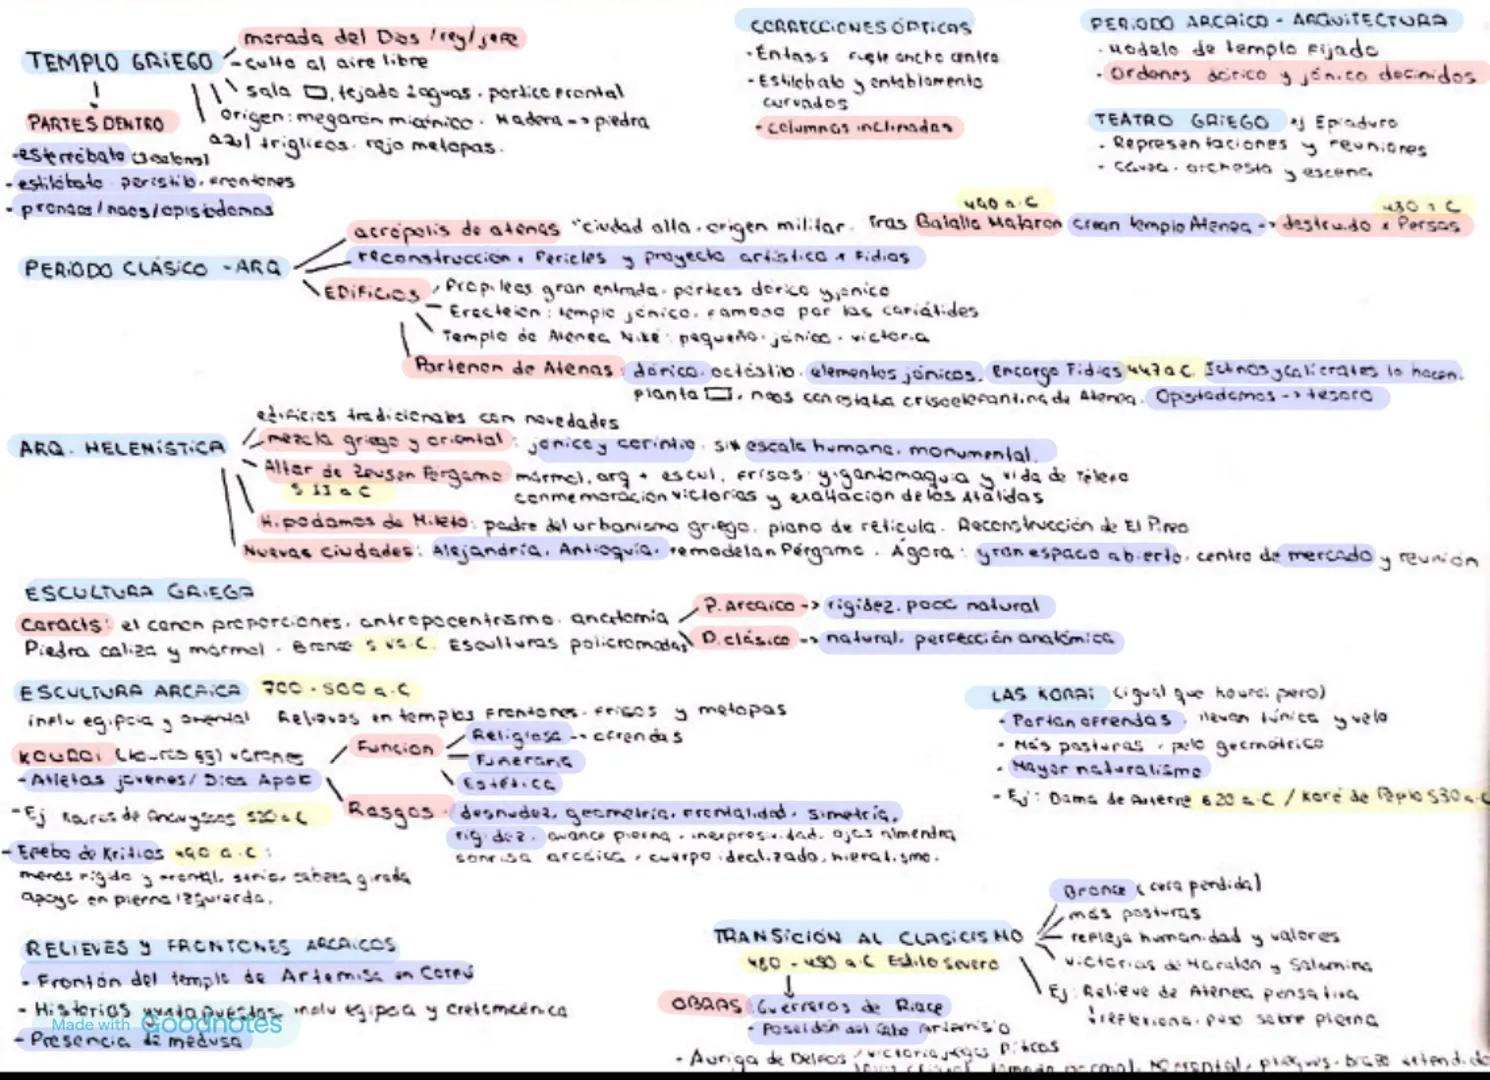 TEMPLO GRIEGO
morada del Dios / rey / jefe
- culto al aire libre
sala ▭, tejado 2 aguas. portico frontal
origen: megaron micénico. Madera -> piedra
azul triglifos. rojo metopas.
PARTES DENTRO
- estilóbato. peristilo. frontones
- pronaos / naos / opistodomos
CORRECCIONES ÓPTICAS
- Éntasis fuste ancho centro
- Estilóbato y entablamento
curvados
- columnas inclinadas
PERIODO ARCAICO - ARQUITECTURA
· Modelo de templo fijado
· Ordenes dórico y jónico definidos
TEATRO GRIEGO ej Epidauro
· Representaciones y reuniones
· cavea. orchestra y escena
PERIODO CLÁSICO - ARQ
490 a.C
acrópolis de atenas "ciudad alta. origen militar. Tras Batalla Maraton crean templo Atenea -> destruido x Persas
reconstrucción. Pericles y proyecto artístico x Fidias
EDIFICIOS
Propileos gran entrada. pórticos dórico y jónico
Erecteion: templo jónico. famoso por las cariátides
Templo de Atenea Niké: pequeño. jónico. victoria
Partenon de Atenas: dórico. octástilo. elementos jónicos. Encargo Fidias 447 a.C. Ictinos y Calicrates lo hacen.
planta ▭. naos con estatua crisoelefantina de Atenea. Opistodomos -> tesoro
ARQ. HELENÍSTICA
edificios tradicionales con novedades
mezcla griego y oriental: jónico y corintio. sin escala humana, monumental.
Altar de Zeus en Pérgamo mármol, arq + escul, frisos: gigantomaquia y vida de Télefo
S II a C
conmemoración victorias y exaltacion de los Atálidas
Hipodamos de Mileto: padre del urbanismo griego. plano de reticula. Reconstrucción de El Pireo
Nuevas ciudades: Alejandría. Antioquía. remodelan Pérgamo. Agora: gran espacio abierto. centro de mercado y reunión
ESCULTURA GRIEGA
Caracts: el canon proporciones. antropocentrismo. anatomia
Piedra caliza y mármol. Bronce S V a.C. Esculturas policromadas
P. Arcaico -> rigidez. poco natural
P. clásico -> natural. perfección anatómica
ESCULTURA ARCAICA 700 - 500 a.C
influ egipcia y oriental Relieves en templos frontones. frisos y metopas
varones
- Atletas jóvenes / Dios Apolo
- Ej Kouros de Anavyssos
- Efebo de Kritios 490 a.C:
menos rígido y frontal. serio. cabeza girada
apoyo en pierna izquierda.
Función
Religiosa -> ofrendas
Funeraria
Estética
Rasgos: desnudez, geometría, frontalidad. simetría.
rigidez. avance pierna. inexpresividad. ojos almendra
sonrisa arcaica. cuerpo idealizado, hieratismo.
LAS KORAI (igual que kouroi pero)
- Portan ofrendas. llevan túnica y velo
- Más posturas, pelo geométrico
- Mayor naturalismo
- Ej: Dama de Auxerre 620 a.C / Koré de Peplo 530 a.C
RELIEVES Y FRONTONES ARCAICOS
- Frontón del templo de Artemisa en Corfú
- Historias influ egipcia y cretomicénica
- Presencia de medusa
Made with Goodnotes
TRANSICIÓN AL CLASICISMO
480 - 450 a.C Estilo severo
Bronce (cera perdida)
más posturas
refleja humanidad y valores
victorias de Maratón y Salamina
Ej: Relieve de Atenea pensativa
reflexiona. peso sobre pierna
OBRAS: Guerreros de Riace
- Poseidón del Cabo Artemisio
- Auriga de Delfos / victoria juegos Píticos